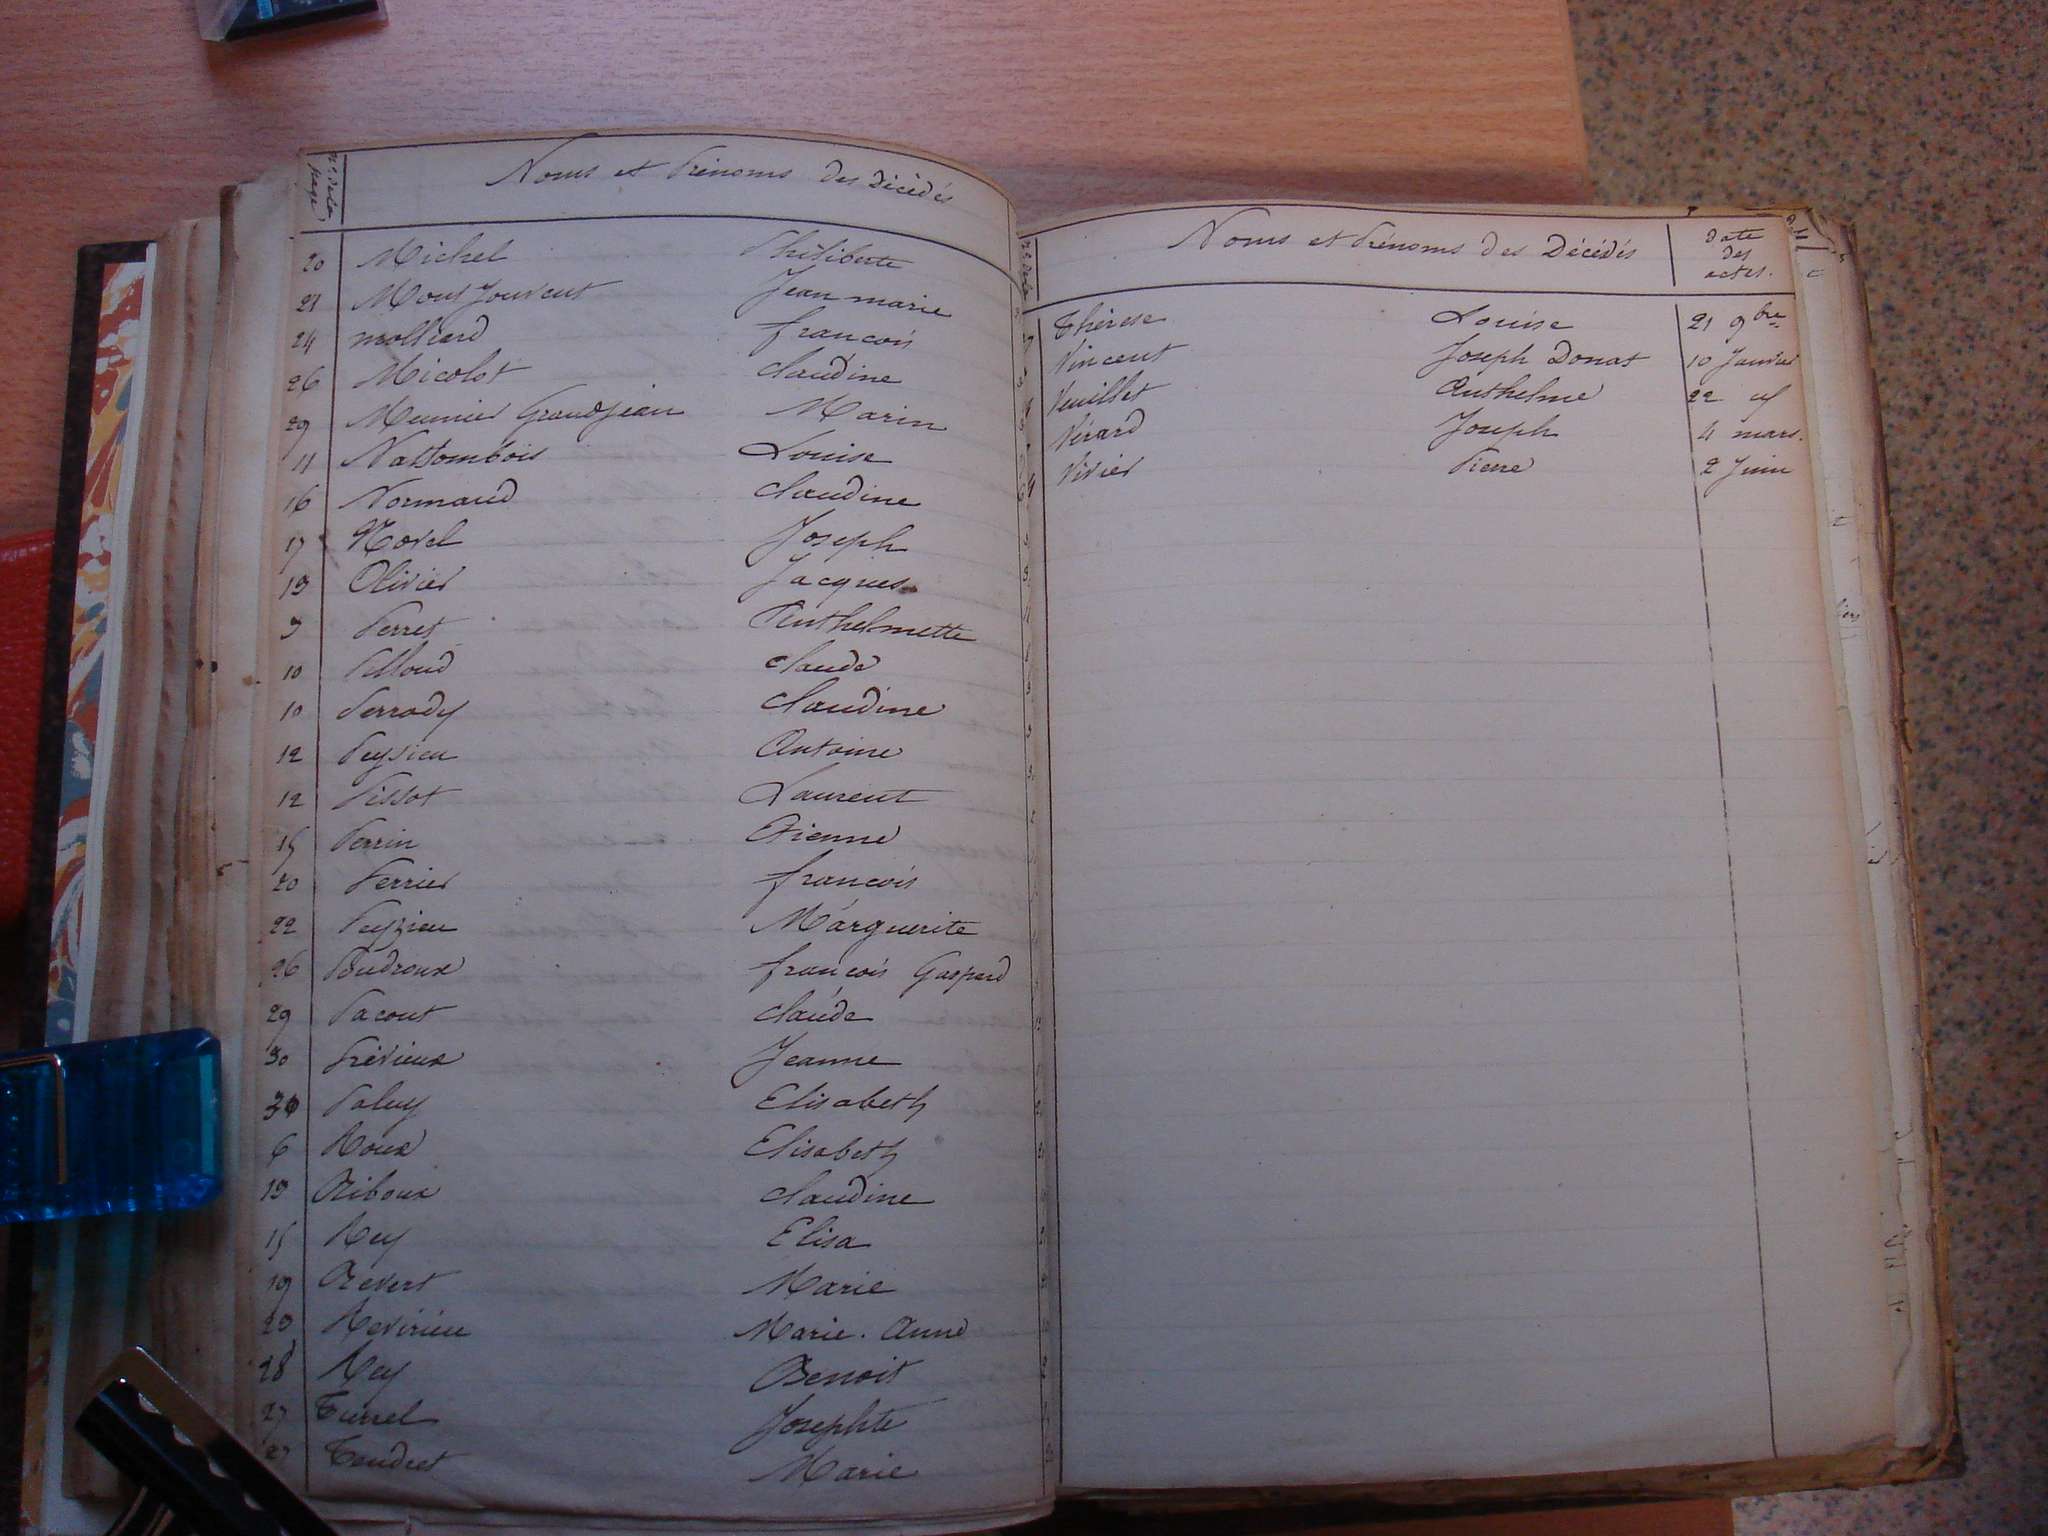 Nos de la page Noms et Prénoms des Décédés
20 Michel Philiberte
21 Montjouvent Jean marie
24 molliard françois
26 Micolot Claudine
29 Meunier Grandjean Marin
11 Nattombois Louise
16 Normand Claudine
17 Novel Joseph
19 Olivier Jacques
9 Perret Anthelmette
10 Pilloud Claude
10 Perrody Claudine
12 Peysieu Antoine
12 Pissot Laurent
15 Perrin Etienne
20 Perrier françois
22 Peyzieu Marguerite
26 Poudroux françois Gaspard
29 Pacout Claude
30 Prévieux Jeanne
30 Paluy Elisabeth
6 Roux Elisabeth
13 Riboux Claudine
15 Rey Elisa
19 Revert Marie
23 Revirieu Marie. Anne
28 Rey Benoit
27 Turrel Josephte
27 Tendret Marie
Noms et Prénoms des Décédés date des actes.
Thérese Louise 21 9bre
Vincent Joseph Donat 10 Janvier
Veuillet Anthelme 22 id
Vérard Joseph 4 mars.
Vivier Pierre 2 Juin